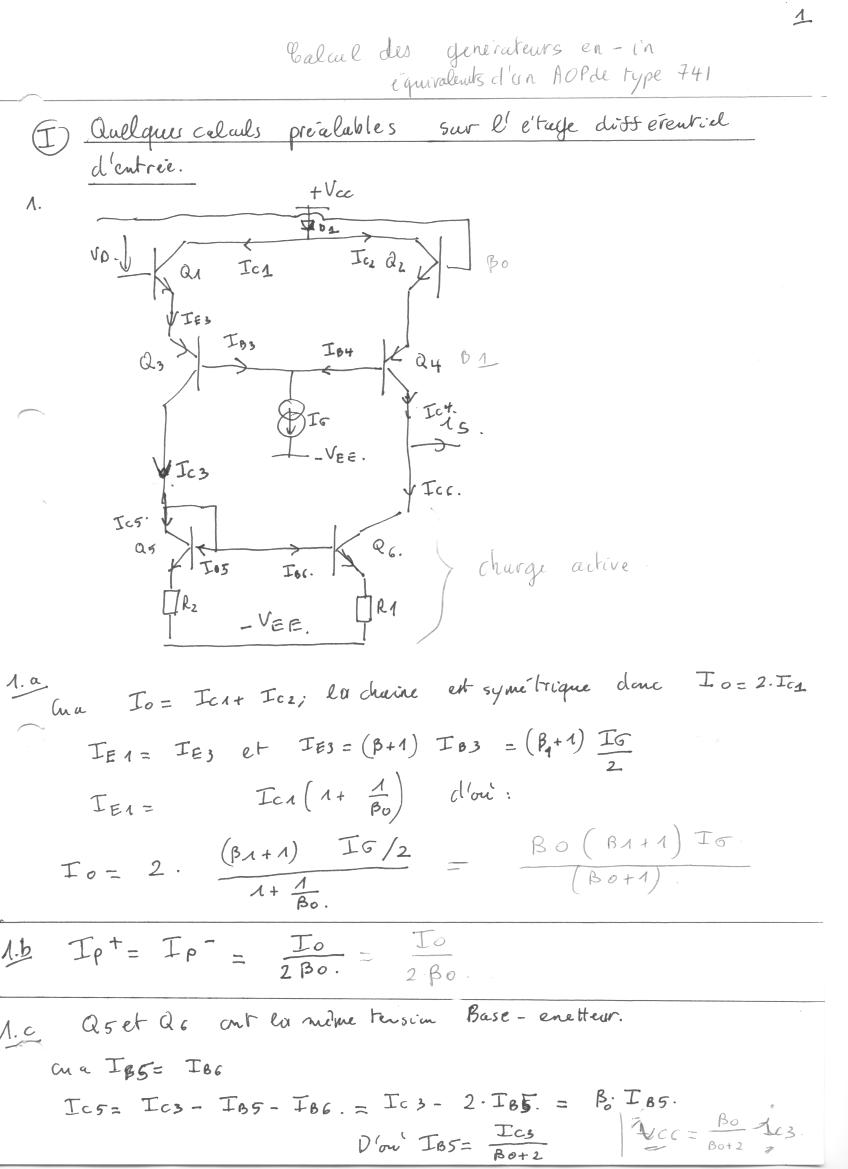 1
Calcul des générateurs en-in
équivalents d'un AOP de type 741
I Quelques calculs préalables sur l'étage différentiel
d'entrée.
1.
+Vcc
D1
VD
Q1
IC1
IC2
Q2
β0
IE3
Q3
IB3
IB4
Q4
β1
IG
IC4.
is.
-VEE.
IC3
IC6.
IC5
Q5
IB5
IB6.
Q6.
charge active
R2
R1
-VEE.
1.a
On a I0 = IC1 + IC2; la chaine est symétrique donc I0 = 2·IC1
IE1 = IE3 et IE3 = (β+1) IB3 = (β1+1) IG/2
IE1 = IC1 (1 + 1/β0) d'où :
I0 = 2 · (β1+1) IG/2 / (1 + 1/β0.) = β0 (β1+1) IG / (β0+1).
1.b Ip+ = Ip- = I0 / 2β0. = I0 / 2β0.
1.c Q5 et Q6 ont la même tension Base-emetteur.
on a IB5 = IB6
IC5 = IC3 - IB5 - IB6. = IC3 - 2·IB5. = β0· IB5.
D'où IB5 = IC3 / β0+2
ICC = β0 / β0+2 IC3.